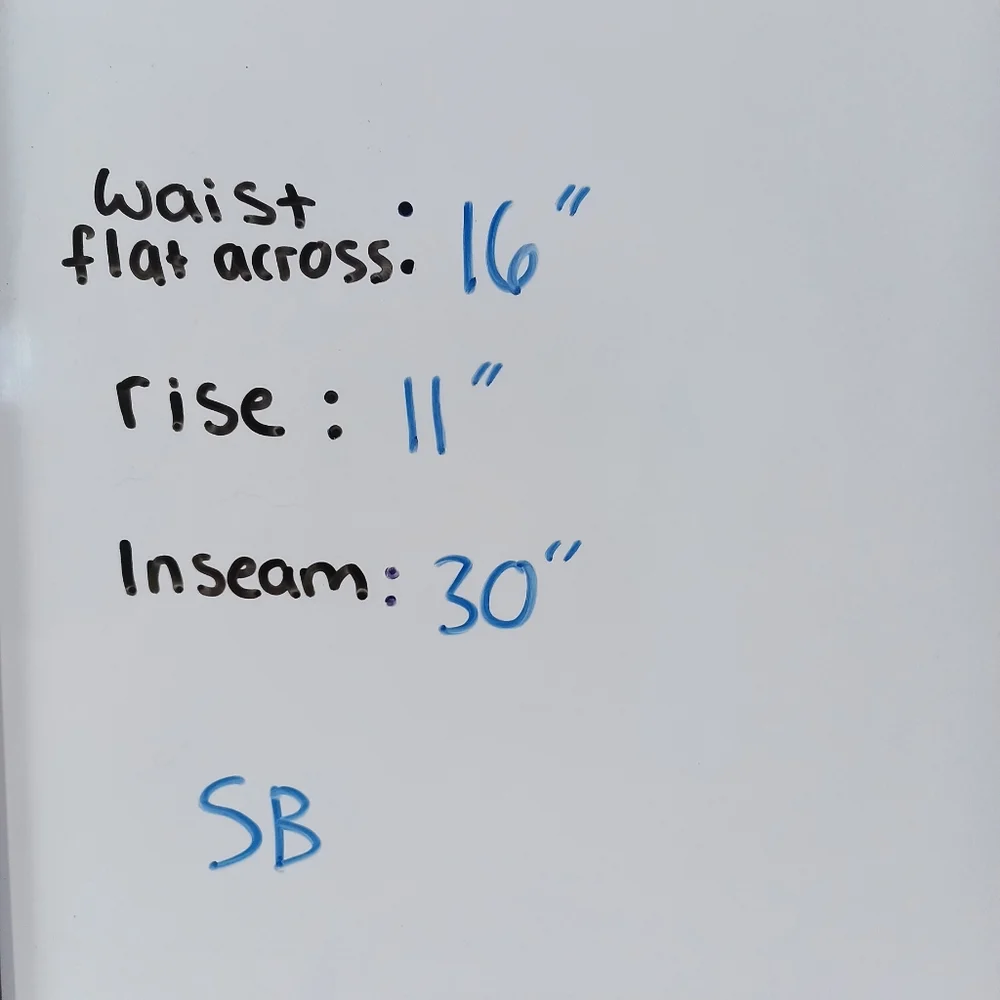 waist
flat across: 16"
rise: 11"
Inseam: 30"
SB